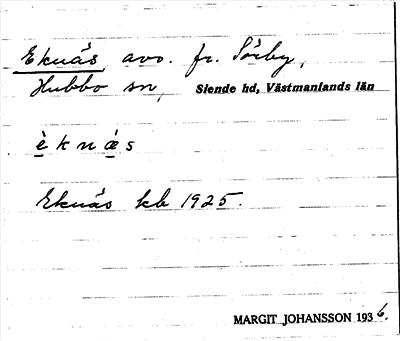 Eknäs, avs. fr. Sörby,
Hubbo sn, Siende hd, Västmanlands län
è k n æ̀ s
Eknäs kb 1925.
MARGIT JOHANSSON 1936.